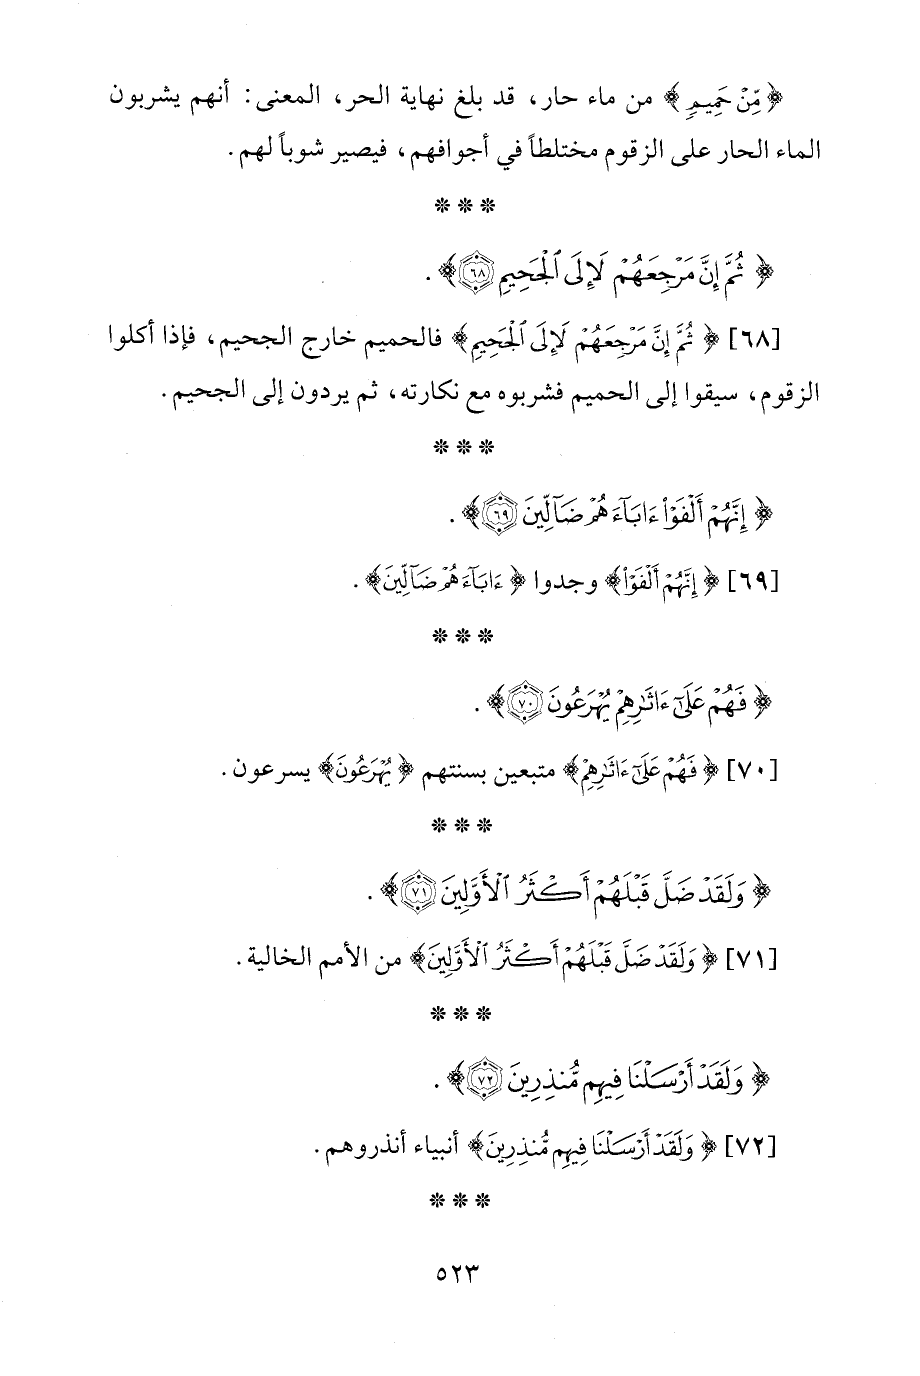 ﴿مِّنْ حَمِيمٍ﴾ من ماء حار، قد بلغ نهاية الحر، المعنى: أنهم يشربون
الماء الحار على الزقوم مختلطاً في أجوافهم، فيصير شوباً لهم.
* * *
﴿ثُمَّ إِنَّ مَرْجِعَهُمْ لَإِلَى ٱلْجَحِيمِ ٦٨﴾.
[٦٨] ﴿ثُمَّ إِنَّ مَرْجِعَهُمْ لَإِلَى ٱلْجَحِيمِ﴾ فالحميم خارج الجحيم، فإذا أكلوا
الزقوم، سيقوا إلى الحميم فشربوه مع نكارته، ثم يردون إلى الجحيم.
* * *
﴿إِنَّهُمْ أَلْفَوْاْ ءَابَآءَهُمْ ضَآلِّينَ ٦٩﴾.
[٦٩] ﴿إِنَّهُمْ أَلْفَوْاْ﴾ وجدوا ﴿ءَابَآءَهُمْ ضَآلِّينَ﴾.
* * *
﴿فَهُمْ عَلَىٰٓ ءَاثَٰرِهِمْ يُهْرَعُونَ ٧٠﴾.
[٧٠] ﴿فَهُمْ عَلَىٰٓ ءَاثَٰرِهِمْ﴾ متبعين بسنتهم ﴿يُهْرَعُونَ﴾ يسرعون.
* * *
﴿وَلَقَدْ ضَلَّ قَبْلَهُمْ أَكْثَرُ ٱلْأَوَّلِينَ ٧١﴾.
[٧١] ﴿وَلَقَدْ ضَلَّ قَبْلَهُمْ أَكْثَرُ ٱلْأَوَّلِينَ﴾ من الأمم الخالية.
* * *
﴿وَلَقَدْ أَرْسَلْنَا فِيهِم مُّنذِرِينَ ٧٢﴾.
[٧٢] ﴿وَلَقَدْ أَرْسَلْنَا فِيهِم مُّنذِرِينَ﴾ أنبياء أنذروهم.
* * *
٥٢٣